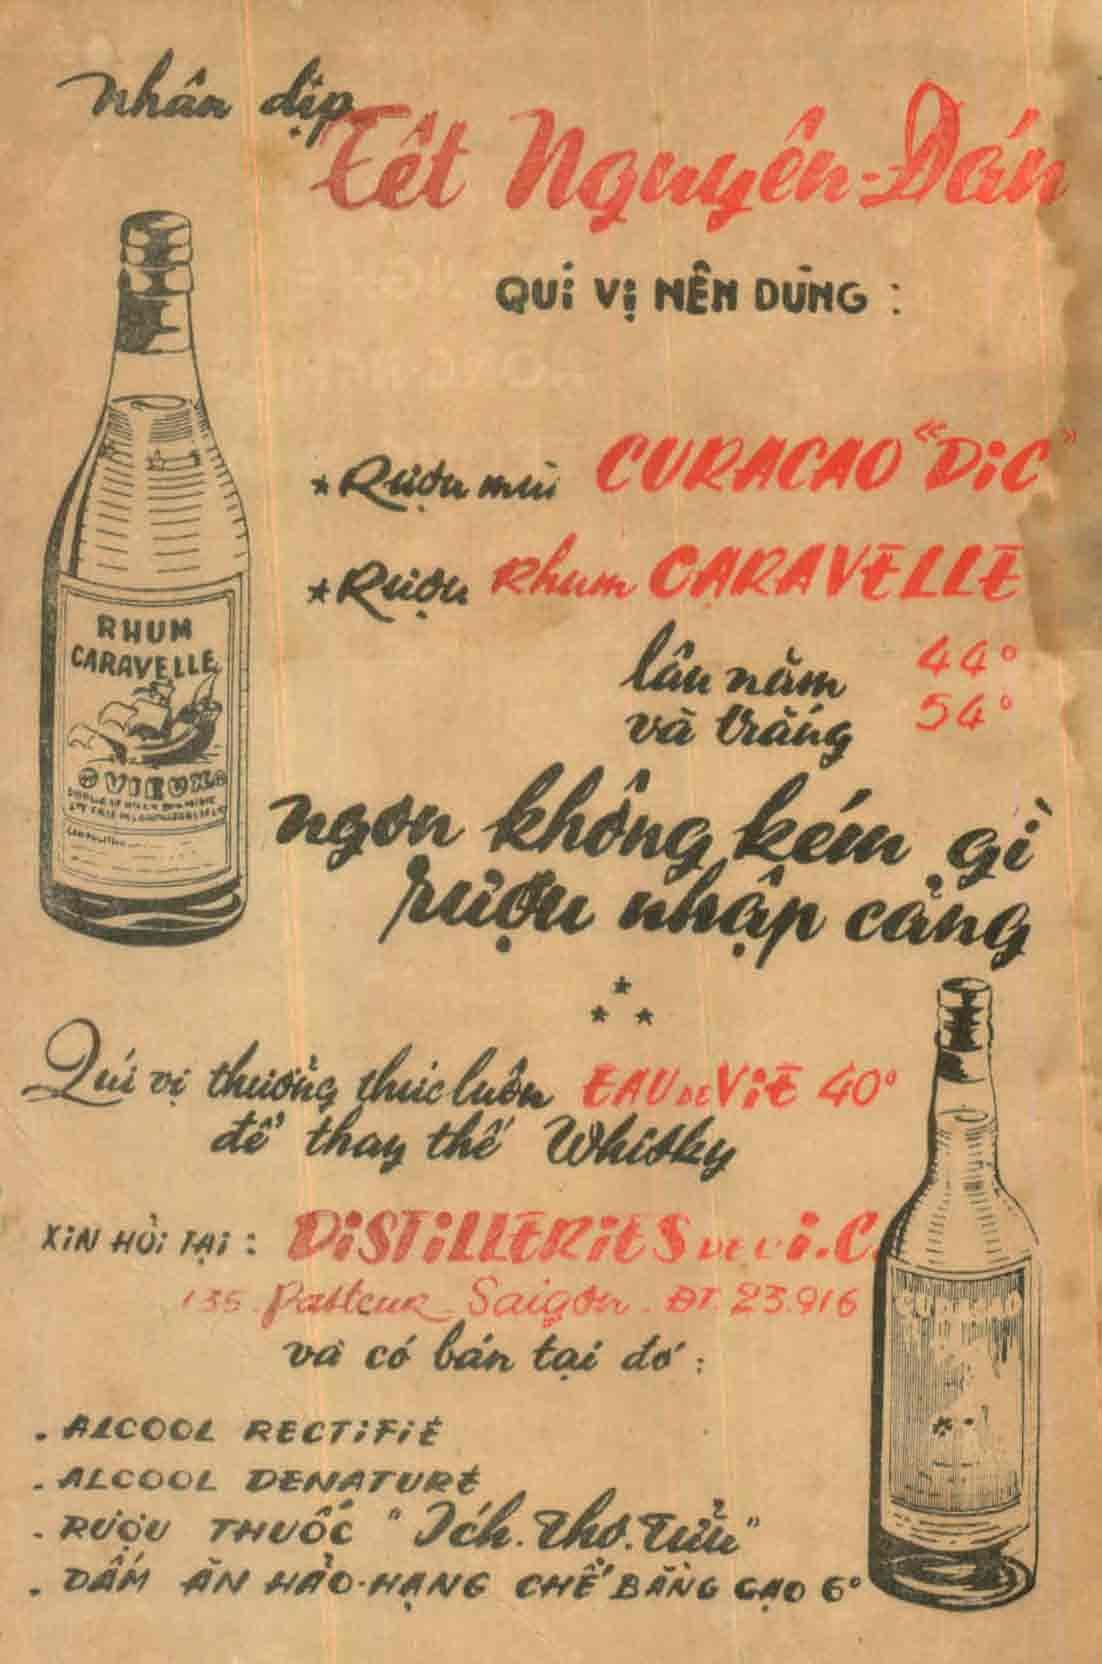 Nhân dịp
Tết Nguyên-Đán
QUÍ VỊ NÊN DÙNG :
* Rượu mùi CURACAO "DiC"
* Rượu Rhum CARAVELLE
lâu năm 44°
và trắng 54°
ngon không kém gì
rượu nhập cảng
* * *
Quí vị thưởng thức luôn EAU DE ViE 40°
để thay thế Whisky
XiN HỎi TẠi : DiSTiLLERiES DE L'i.C.
135 Pasteur Saigon. ĐT. 23.916
và có bán tại đó :
. ALCOOL RECTiFiÉ
. ALCOOL DENATURÉ
. RƯỢU THUỐC "Ích.Thọ.Tửu"
. DẤM ĂN HẢO-HẠNG CHẾ BẰNG GẠO 6°
RHUM
CARAVELLE
VIEUX
CURACAO